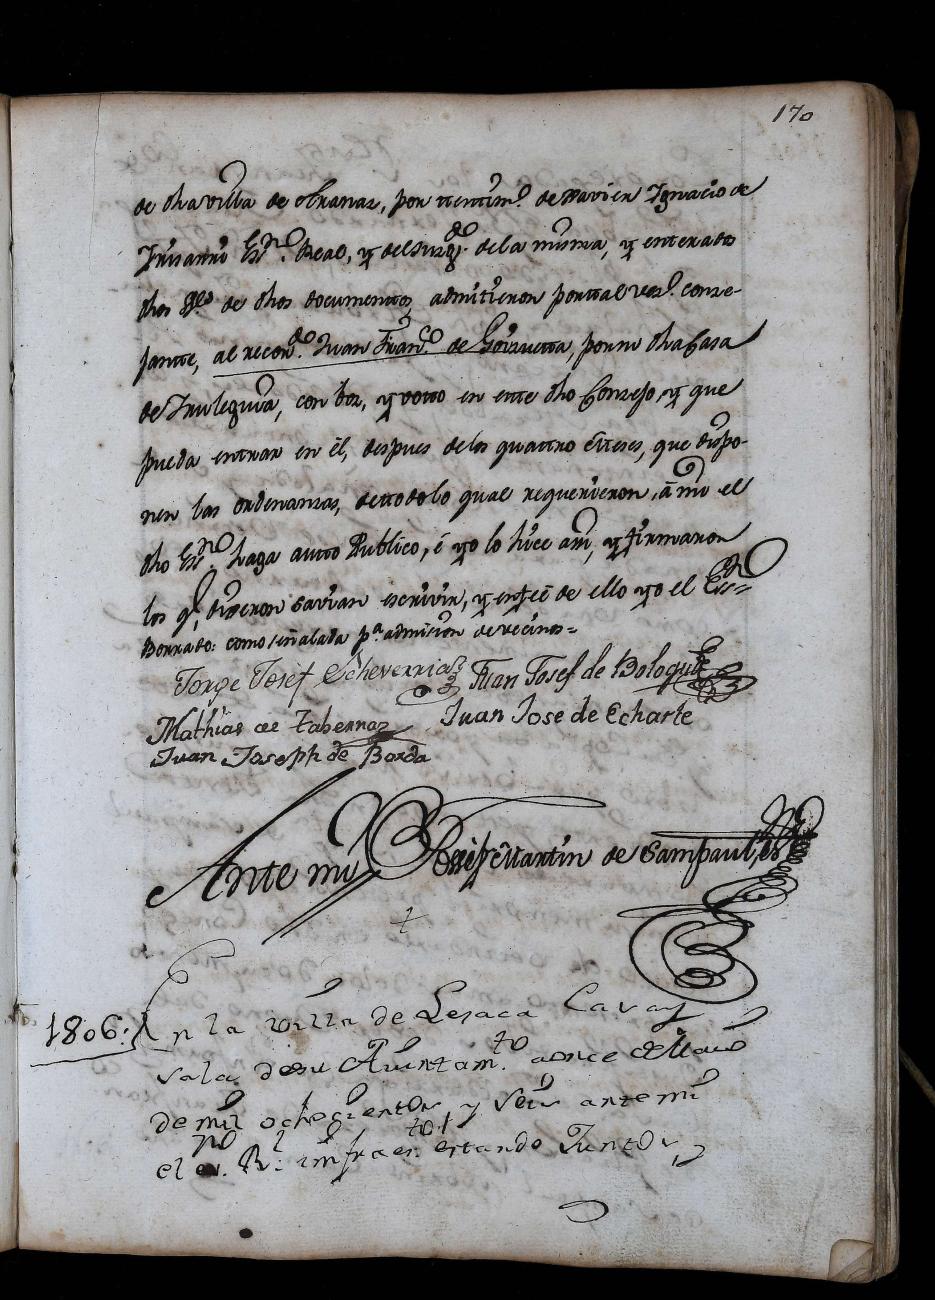 170
de dha villa de Aranaz, por testim.º de Xavier Ignacio de
Irisarri Esno. Real, y del Juzg.do de la misma, y enterado
dhos S.res de dhos documentos, admitieron por tal vez.º conze-
jante, al recon.do Juan Fran.co de Goizueta, por su dha Casa
de Iruleguia, con boz, y voto en este dho Consejo, y que
pueda entrar en él, despues de los quattro meses, que dispo-
nen las ordenanzas, de todo lo qual requerieron, á mi el
dho Esno. haga autto Publico, é yo lo hice assi, y firmaron
los q.e dixeron savian escrivir, y en fee de ello yo el Essno=
Borrado: como señalada p.ª admision de vecinos=
Jorge Josef Echeverria
Juan Josef de Bologui
Mathias de Tabernaz
Juan Jose de Echarte
Juan Joseph de Borda
Ante mi Josef Martin de Sampaul, es.no
1806:
En la villa de Lesaca Cavas y
sala de su Aiuntam.to a once de Maio
de mil ochocientos y seis ante mi
el es.no R.l infraes.to estando Juntos,